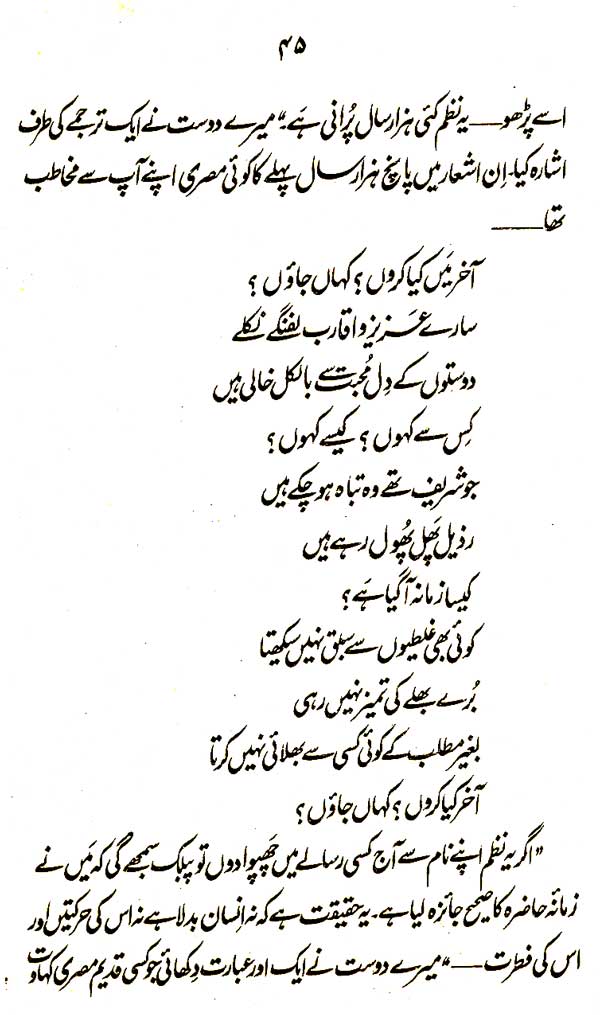 ۴۵
اسے پڑھو ــــ یہ نظم کئی ہزار سال پُرانی ہَے۔" میرے دوست نے ایک ترجمے کی طرف
اشارہ کیا۔ اِن اشعار میں پانچ ہزار سال پہلے کا کوئی مصری اپنے آپ سے مخاطب
تھا ــــ
آخر مَیں کیا کروں؟ کہاں جاؤں؟
سارے عزیز و اقارب لفنگے نکلے
دوستوں کے دِل مُحبت سے بالکل خالی ہیں
کِس سے کہوں؟ کیسے کہوں؟
جو شریف تھے وہ تباہ ہو چکے ہیں
رذیل پَھل پُھول رہے ہیں
کیسا زمانہ آ گیا ہَے؟
کوئی بھی غلطیوں سے سبق نہیں سیکھتا
بُرے بھلے کی تمیز نہیں رہی
بغیر مطلب کے کوئی کسی سے بھلائی نہیں کرتا
آخر کیا کروں؟ کہاں جاؤں؟
"اگر یہ نظم اپنے نام سے آج کسی رسالے میں چَھپوا دوں تو پبلک سمجھے گی کہ مَیں نے
زمانہ حاضرہ کا صحیح جائزہ لیا ہے۔ یہ حقیقت ہے کہ نہ اِنسان بدلا ہے نہ اس کی حرکتیں اور
اس کی فطرت ــــ" میرے دوست نے ایک اور عبارت دِکھائی جو کسی قدیم مصری کہاوت